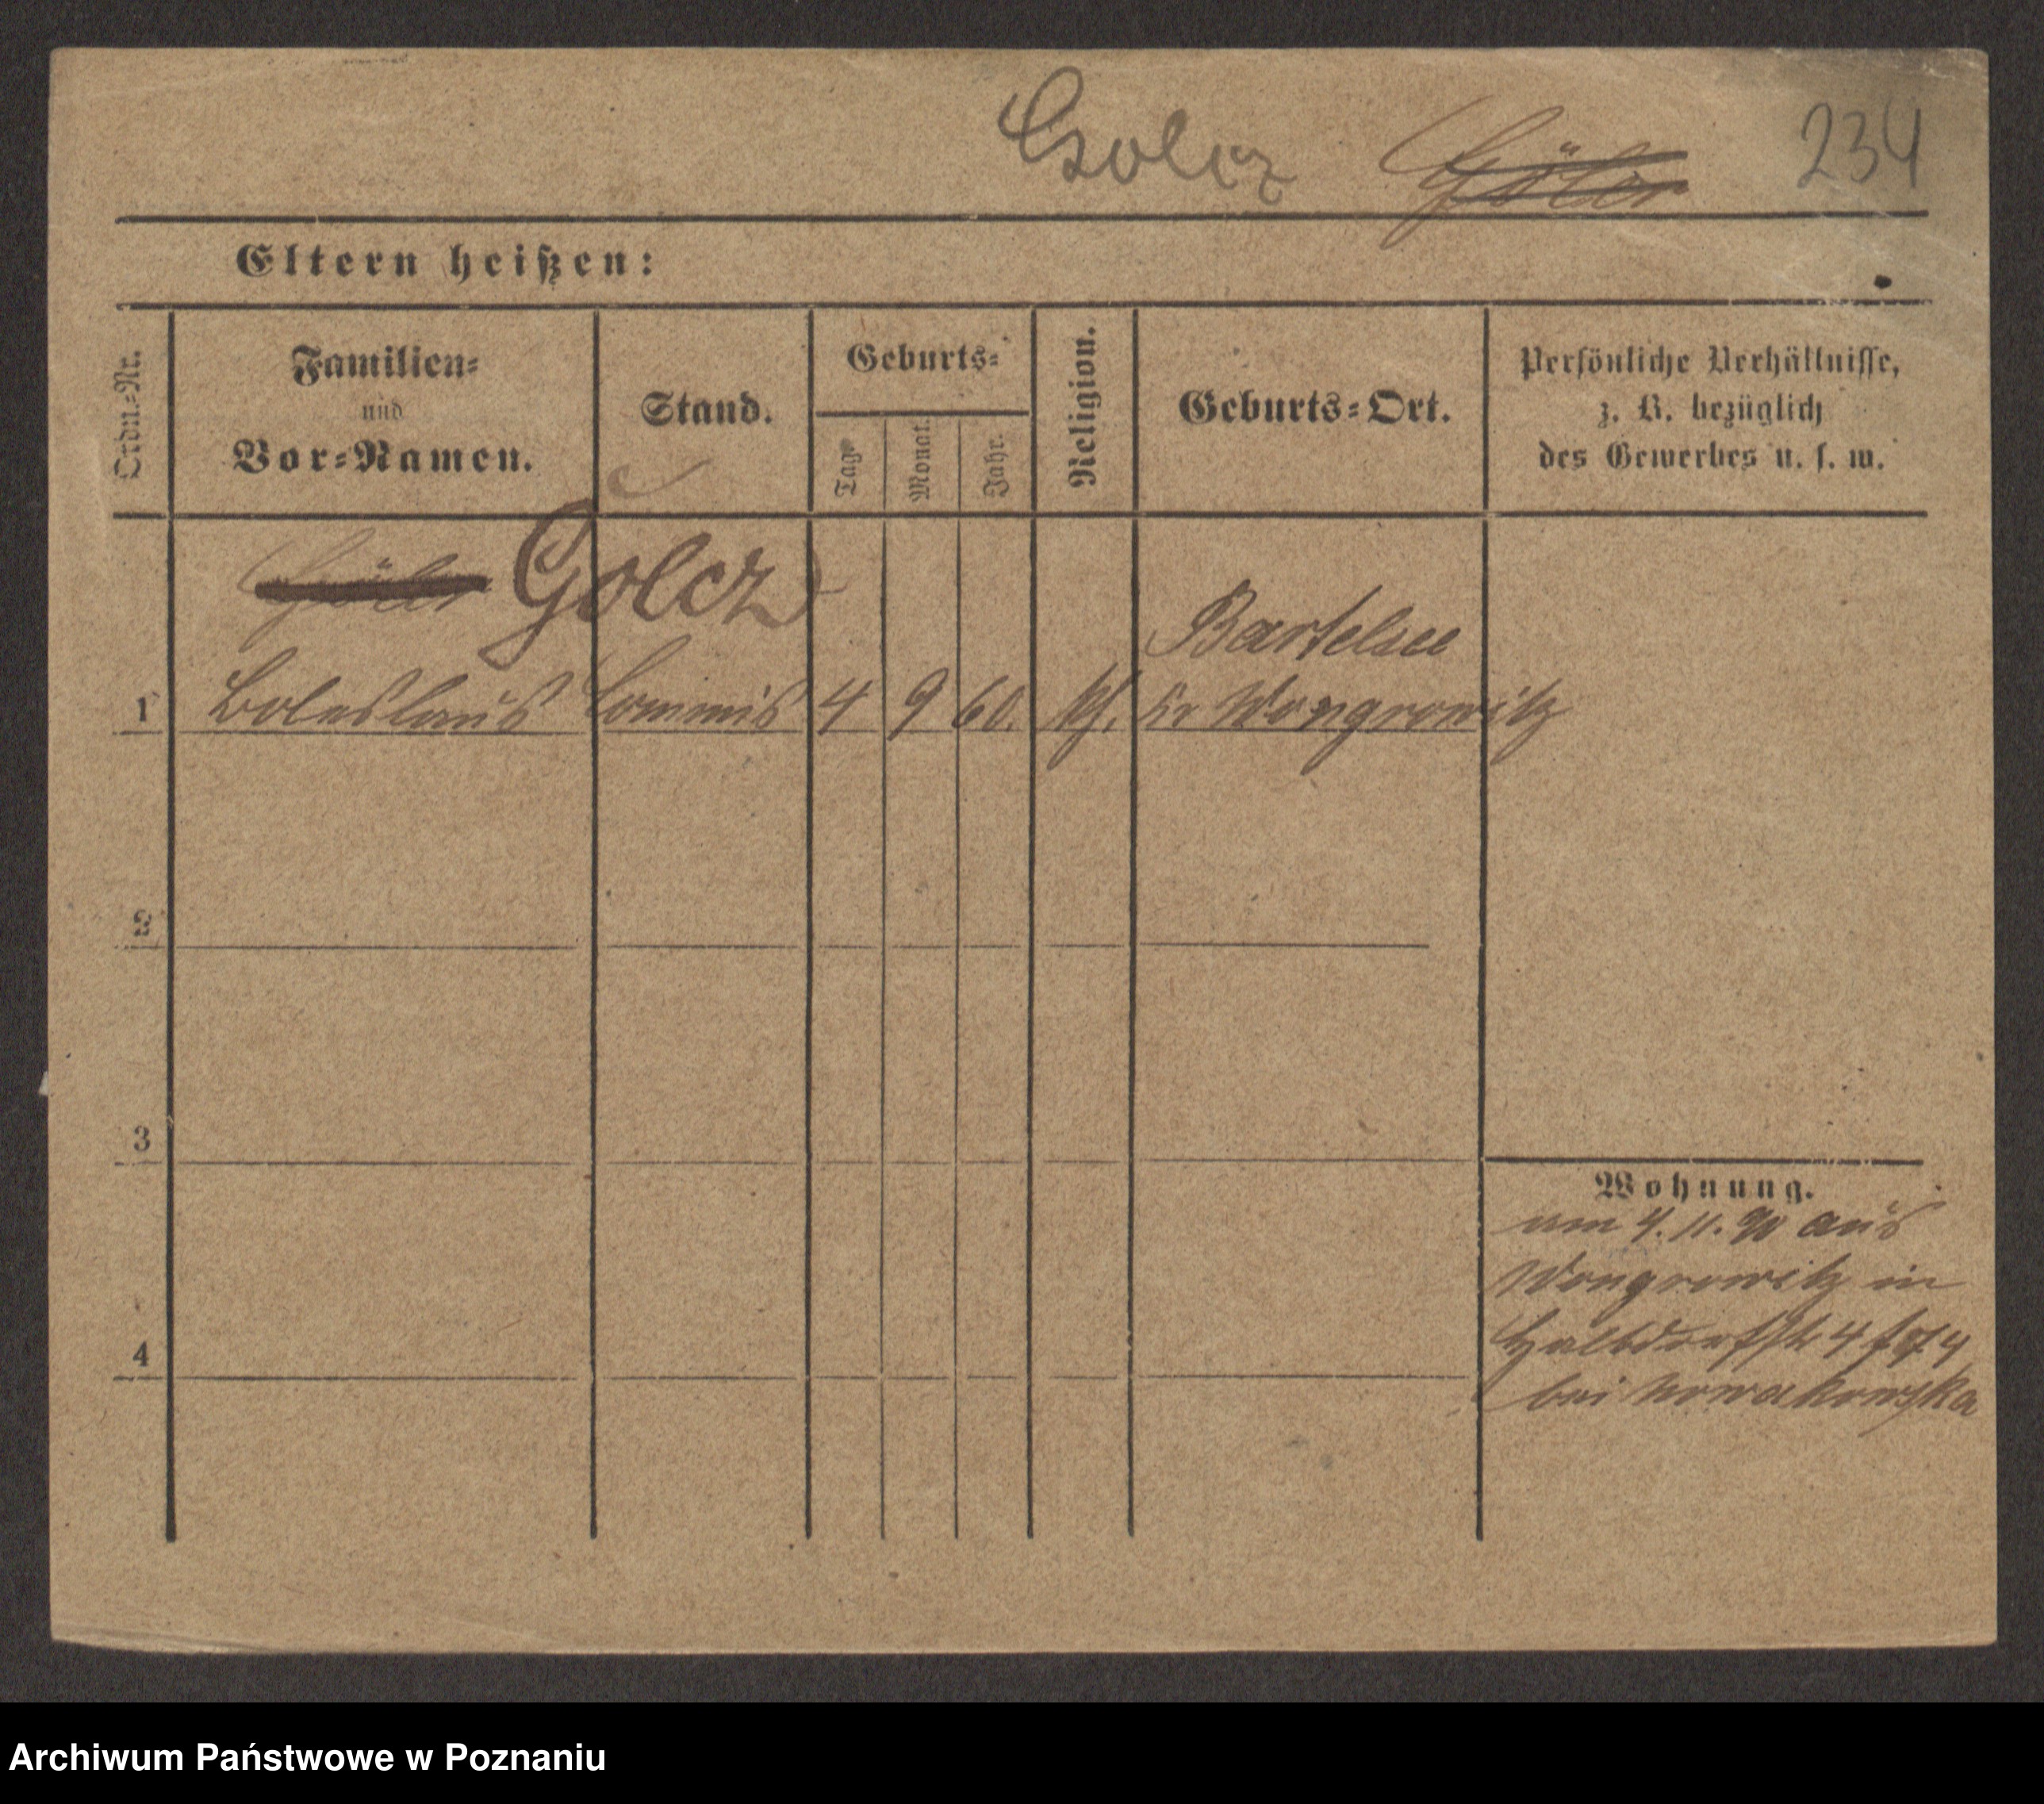 Golcz Göler 234
Eltern heißen:
Ordn.-Nr.
Familien-
und
Vor-Namen.
Stand.
Geburts-
Tag
Monat.
Jahr.
Religion.
Geburts-Ort.
Persönliche Verhältnisse,
z. B. bezüglich
des Gewerbes u. s. w.
Golcz
Bartelsee
1 Boleslaus Commis 4 9 60. kth. Kr Wongrowitz
2
3
4
Wohnung.
am 4. 11. 90 aus
Wongrowitz in
Halbdorfstr 4
bei Nowakowska
Archiwum Państwowe w Poznaniu